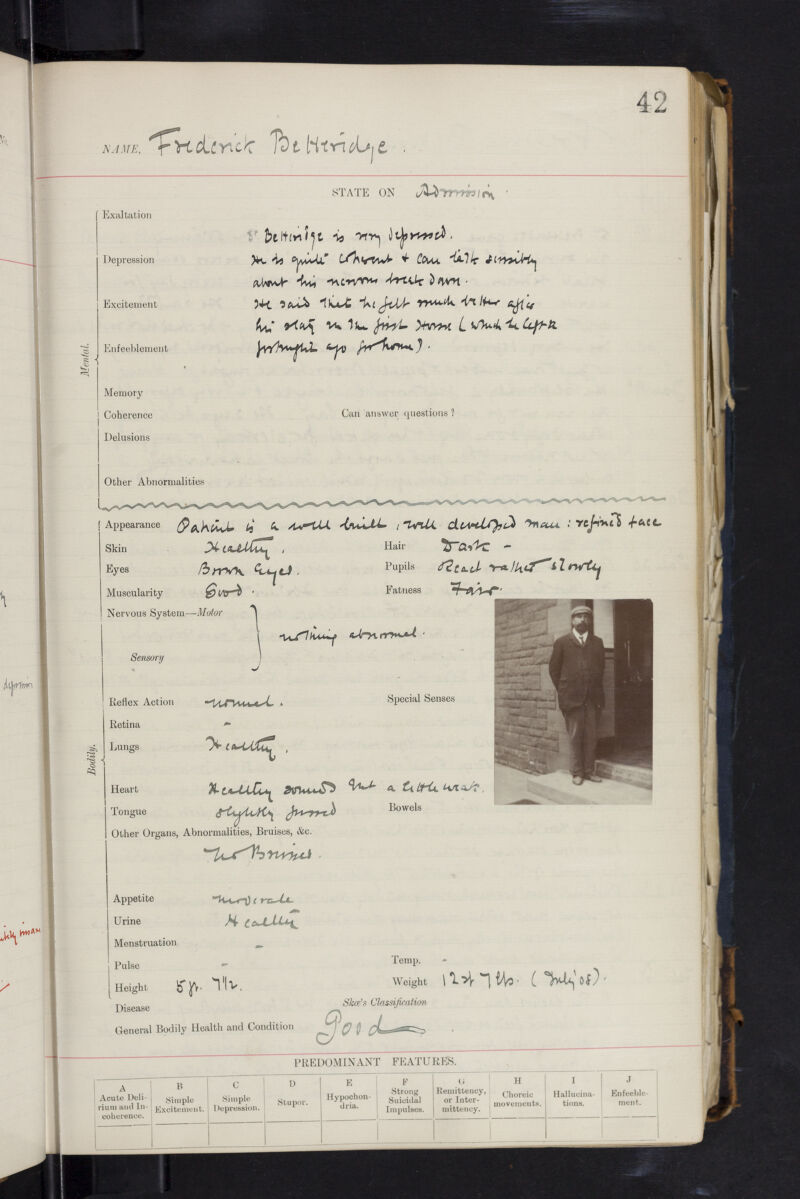 42
NAME. Frederick Betteridge.
STATE ON Admission.
Mental.
Exaltation
Betteridge is very depressed.
Depression He is quite coherent + can talk sensibly
about his nervous break down.
Excitement He said that he felt much better after
his stay in the first House (which he left a
Enfeeblement fortnight ago for home).
Memory
Coherence Can answer questions?
Delusions
Other Abnormalities
Bodily.
Appearance Patient is a well built, well developed man: refined face
Skin Healthy. Hair Dark -
Eyes Brown Eyes. Pupils React rather slowly
Muscularity Good. Fatness Fair.
Nervous System—Motor
nothing abnormal.
Sensory
Reflex Action normal. Special Senses
Retina -
Lungs Healthy.
Heart Healthy sounds but a little weak.
Tongue slightly furred Bowels
Other Organs, Abnormalities, Bruises, &c.
No Bruises.
Appetite moderate
Urine Healthy
Menstruation -
Pulse - Temp. -
Height 5 ft. 7 1/2. Weight 12 st 7 lbs. (July '08).
Disease Skae's Classification
General Bodily Health and Condition Good
PREDOMINANT FEATURES.
A B C D E F G H I J
Acute Delirium and Incoherence. Simple Excitement. Simple Depression. Stupor. Hypochondria. Strong Suicidal Impulses. Remittency, or Intermittency. Choreic movements. Hallucinations. Enfeeblement.